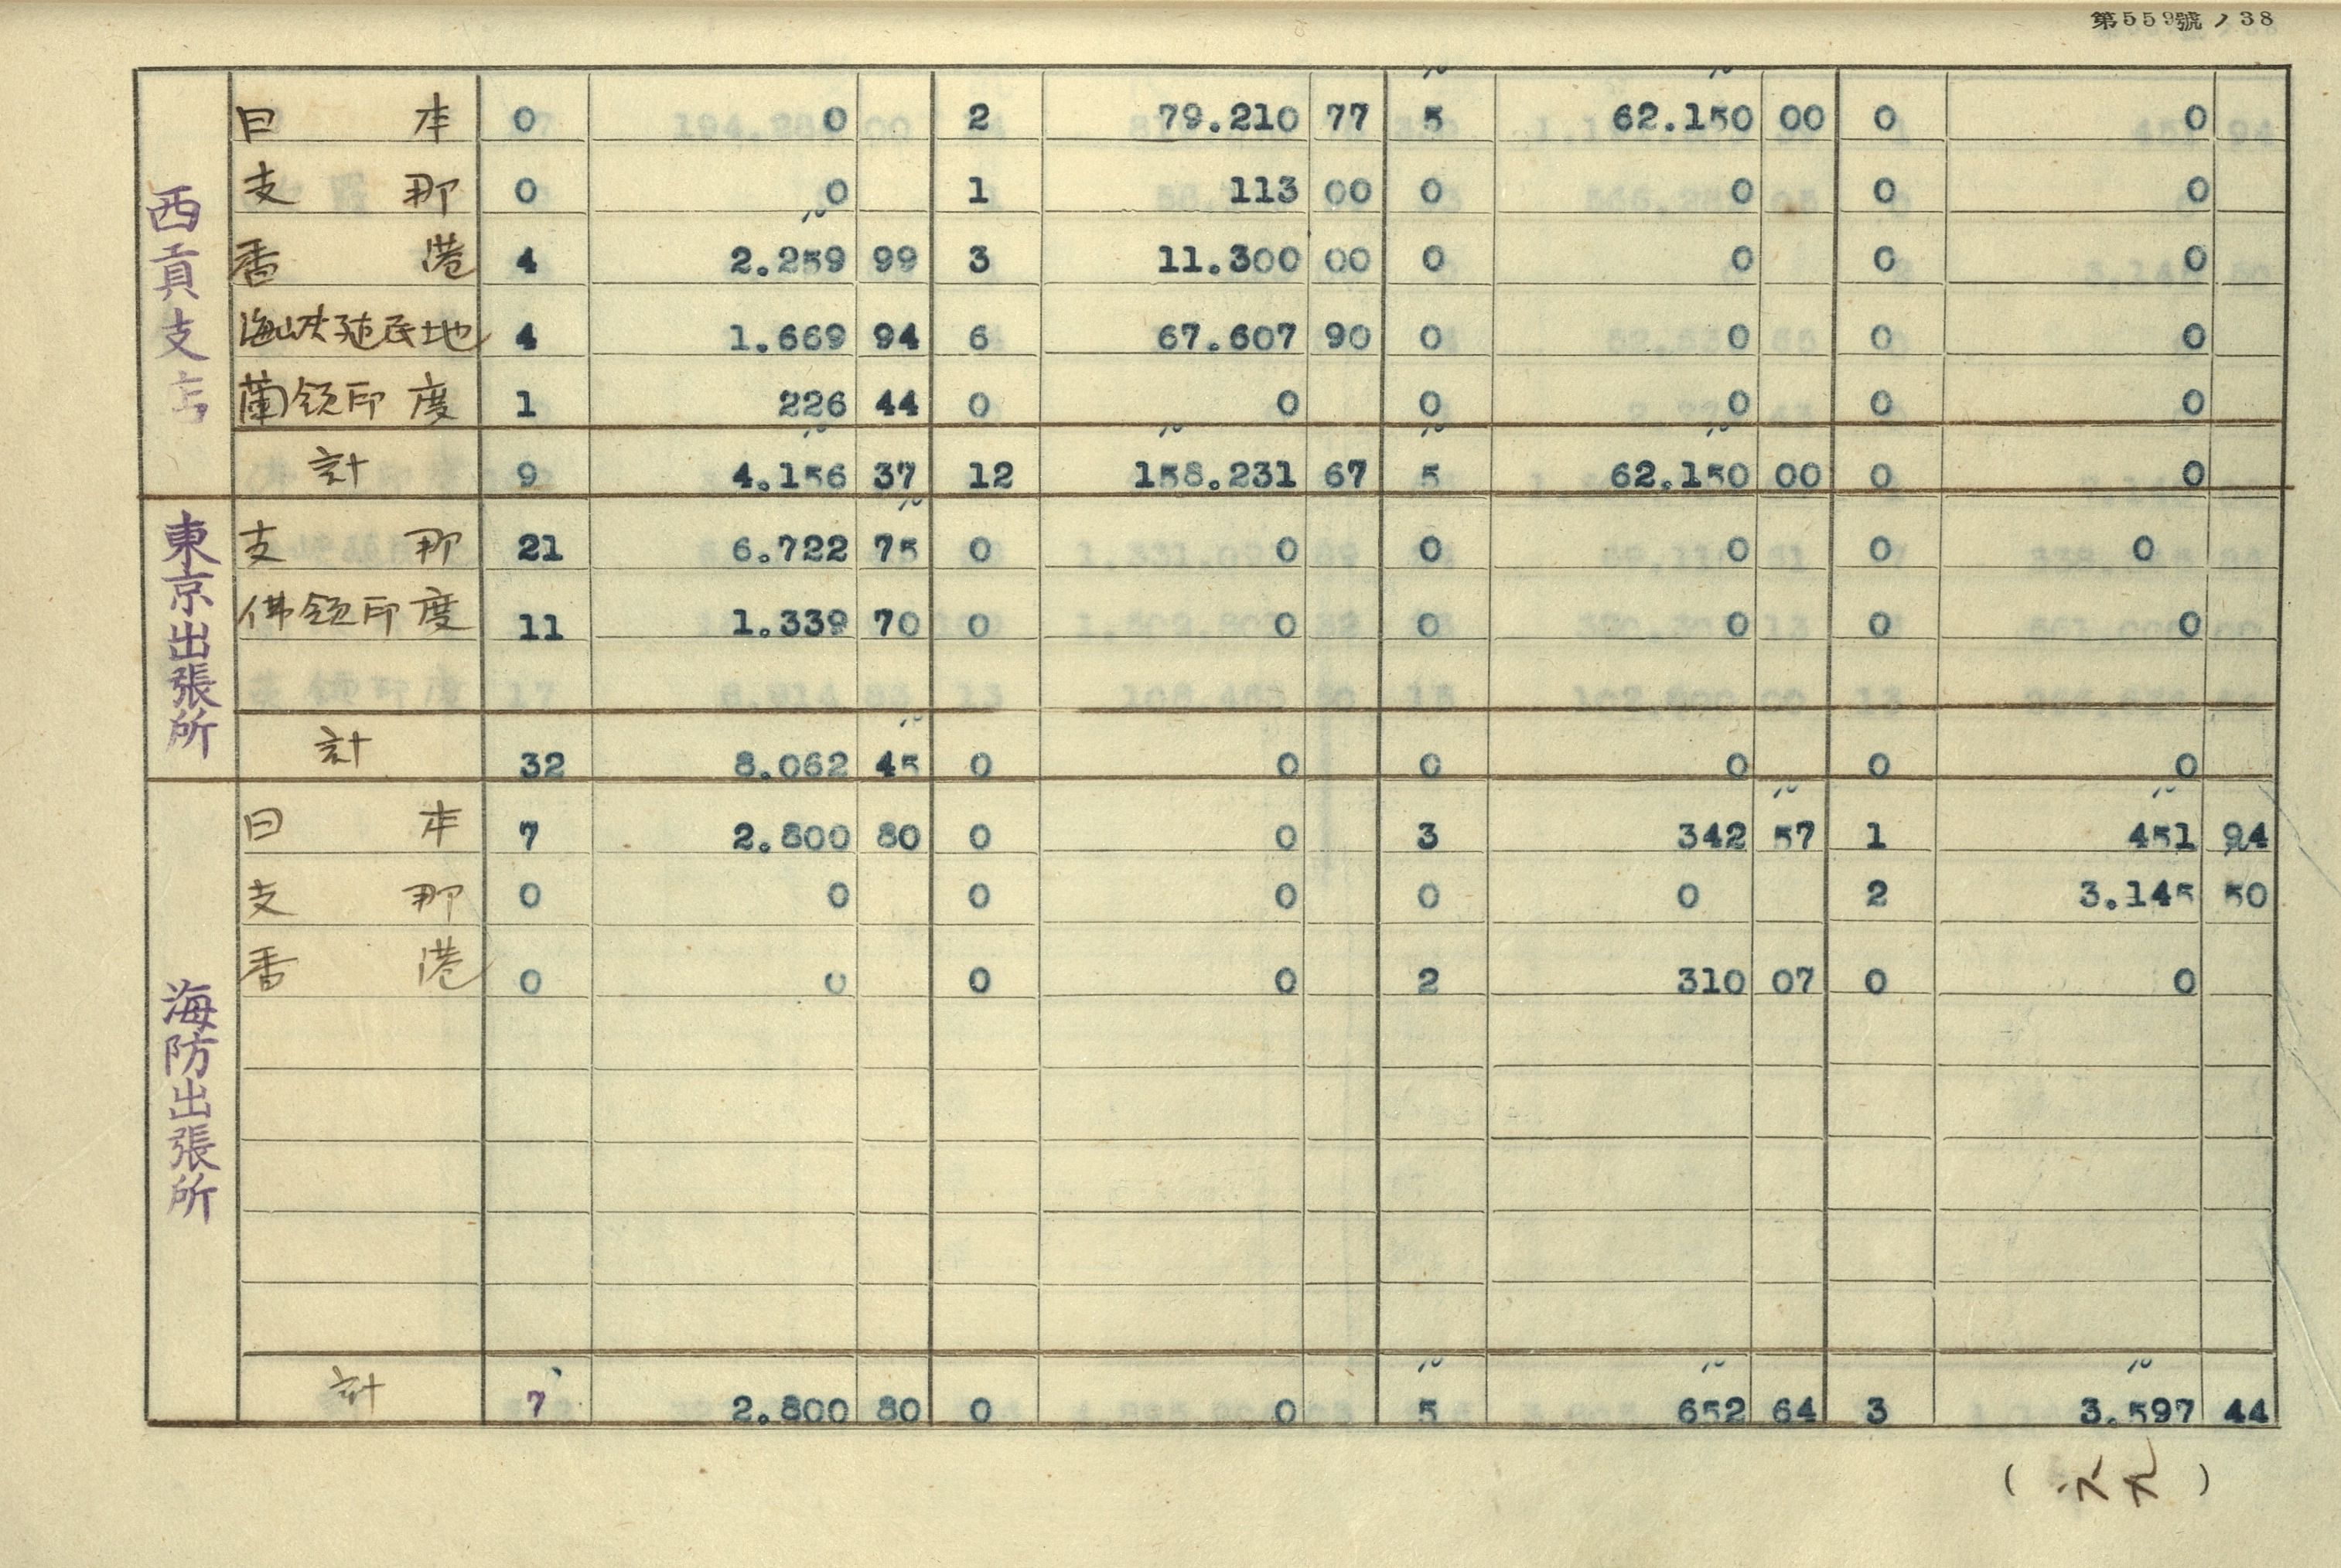 第559號ノ38
西貢支店
日本 0 0 2 79.210 77 5 62.150 00 0 0
支那 0 0 1 113 00 0 0 0 0
香港 4 2.259 99 3 11.300 00 0 0 0 0
海峡殖民地 4 1.669 94 6 67.607 90 0 0 0 0
蘭領印度 1 226 44 0 0 0 0 0 0
計 9 4.156 37 12 158.231 67 5 62.150 00 0 0
東京出張所
支那 21 6.722 75 0 0 0 0 0 0
佛領印度 11 1.339 70 0 0 0 0 0 0
計 32 8.062 45 0 0 0 0 0 0
海防出張所
日本 7 2.800 80 0 0 3 342 57 1 451 94
支那 0 0 0 0 0 0 2 3.145 50
香港 0 0 0 0 2 310 07 0 0
計 7 2.800 80 0 0 5 652 64 3 3.597 44